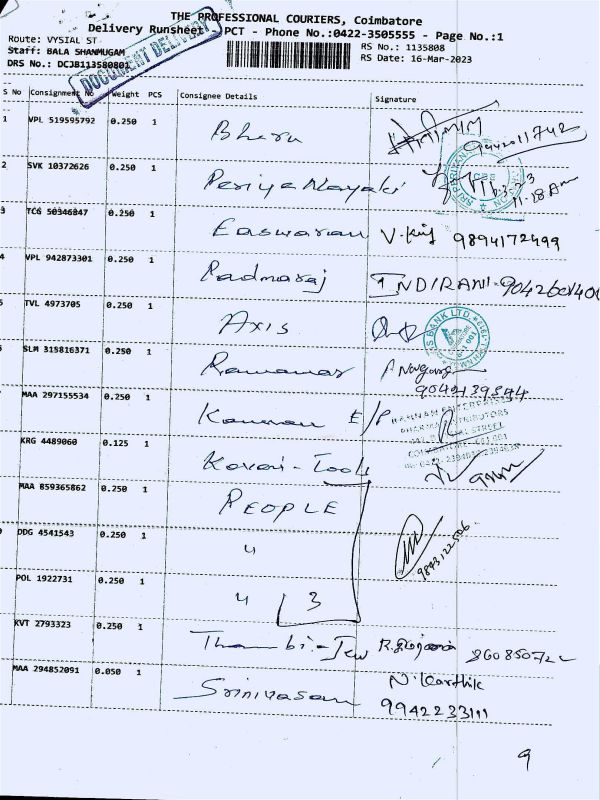 THE PROFESSIONAL COURIERS, Coimbatore
Delivery Runsheet - PCT - Phone No.:0422-3505555 - Page No.:1
Route: VYSIAL ST
Staff: BALA SHANMUGAM
DRS No.: DCJB113580801
RS No.: 1135808
RS Date: 16-Mar-2023
DOCUMENT DELIVERY
S No Consignment No Weight PCS Consignee Details Signature
1 VPL 519595792 0.250 1 Bheru 9442011742
2 SVK 10372626 0.250 1 Periya Nayaki 16.3.23
11.28 Am
3 TCG 50346847 0.250 1 Easwaran V. 9894172499
4 VPL 942873301 0.250 1 Padmaraj INDIRANI - 904260140
TVL 4973705 0.250 1 Axis
BANK LTD.
SLM 315816371 0.250 1
9042139344
MAA 297155534 0.250 1 E/P
KRG 4489060 0.125 1 Kovai - Tools
MAA 859365862 0.250 1 PEOPLE
DDG 4541543 0.250 1 "
9843122506
POL 1922731 0.250 1 " 3
KVT 2793323 0.250 1 Thambi - Jew
MAA 294852091 0.050 1 Srinivasan N. Karthik
9942233111
9